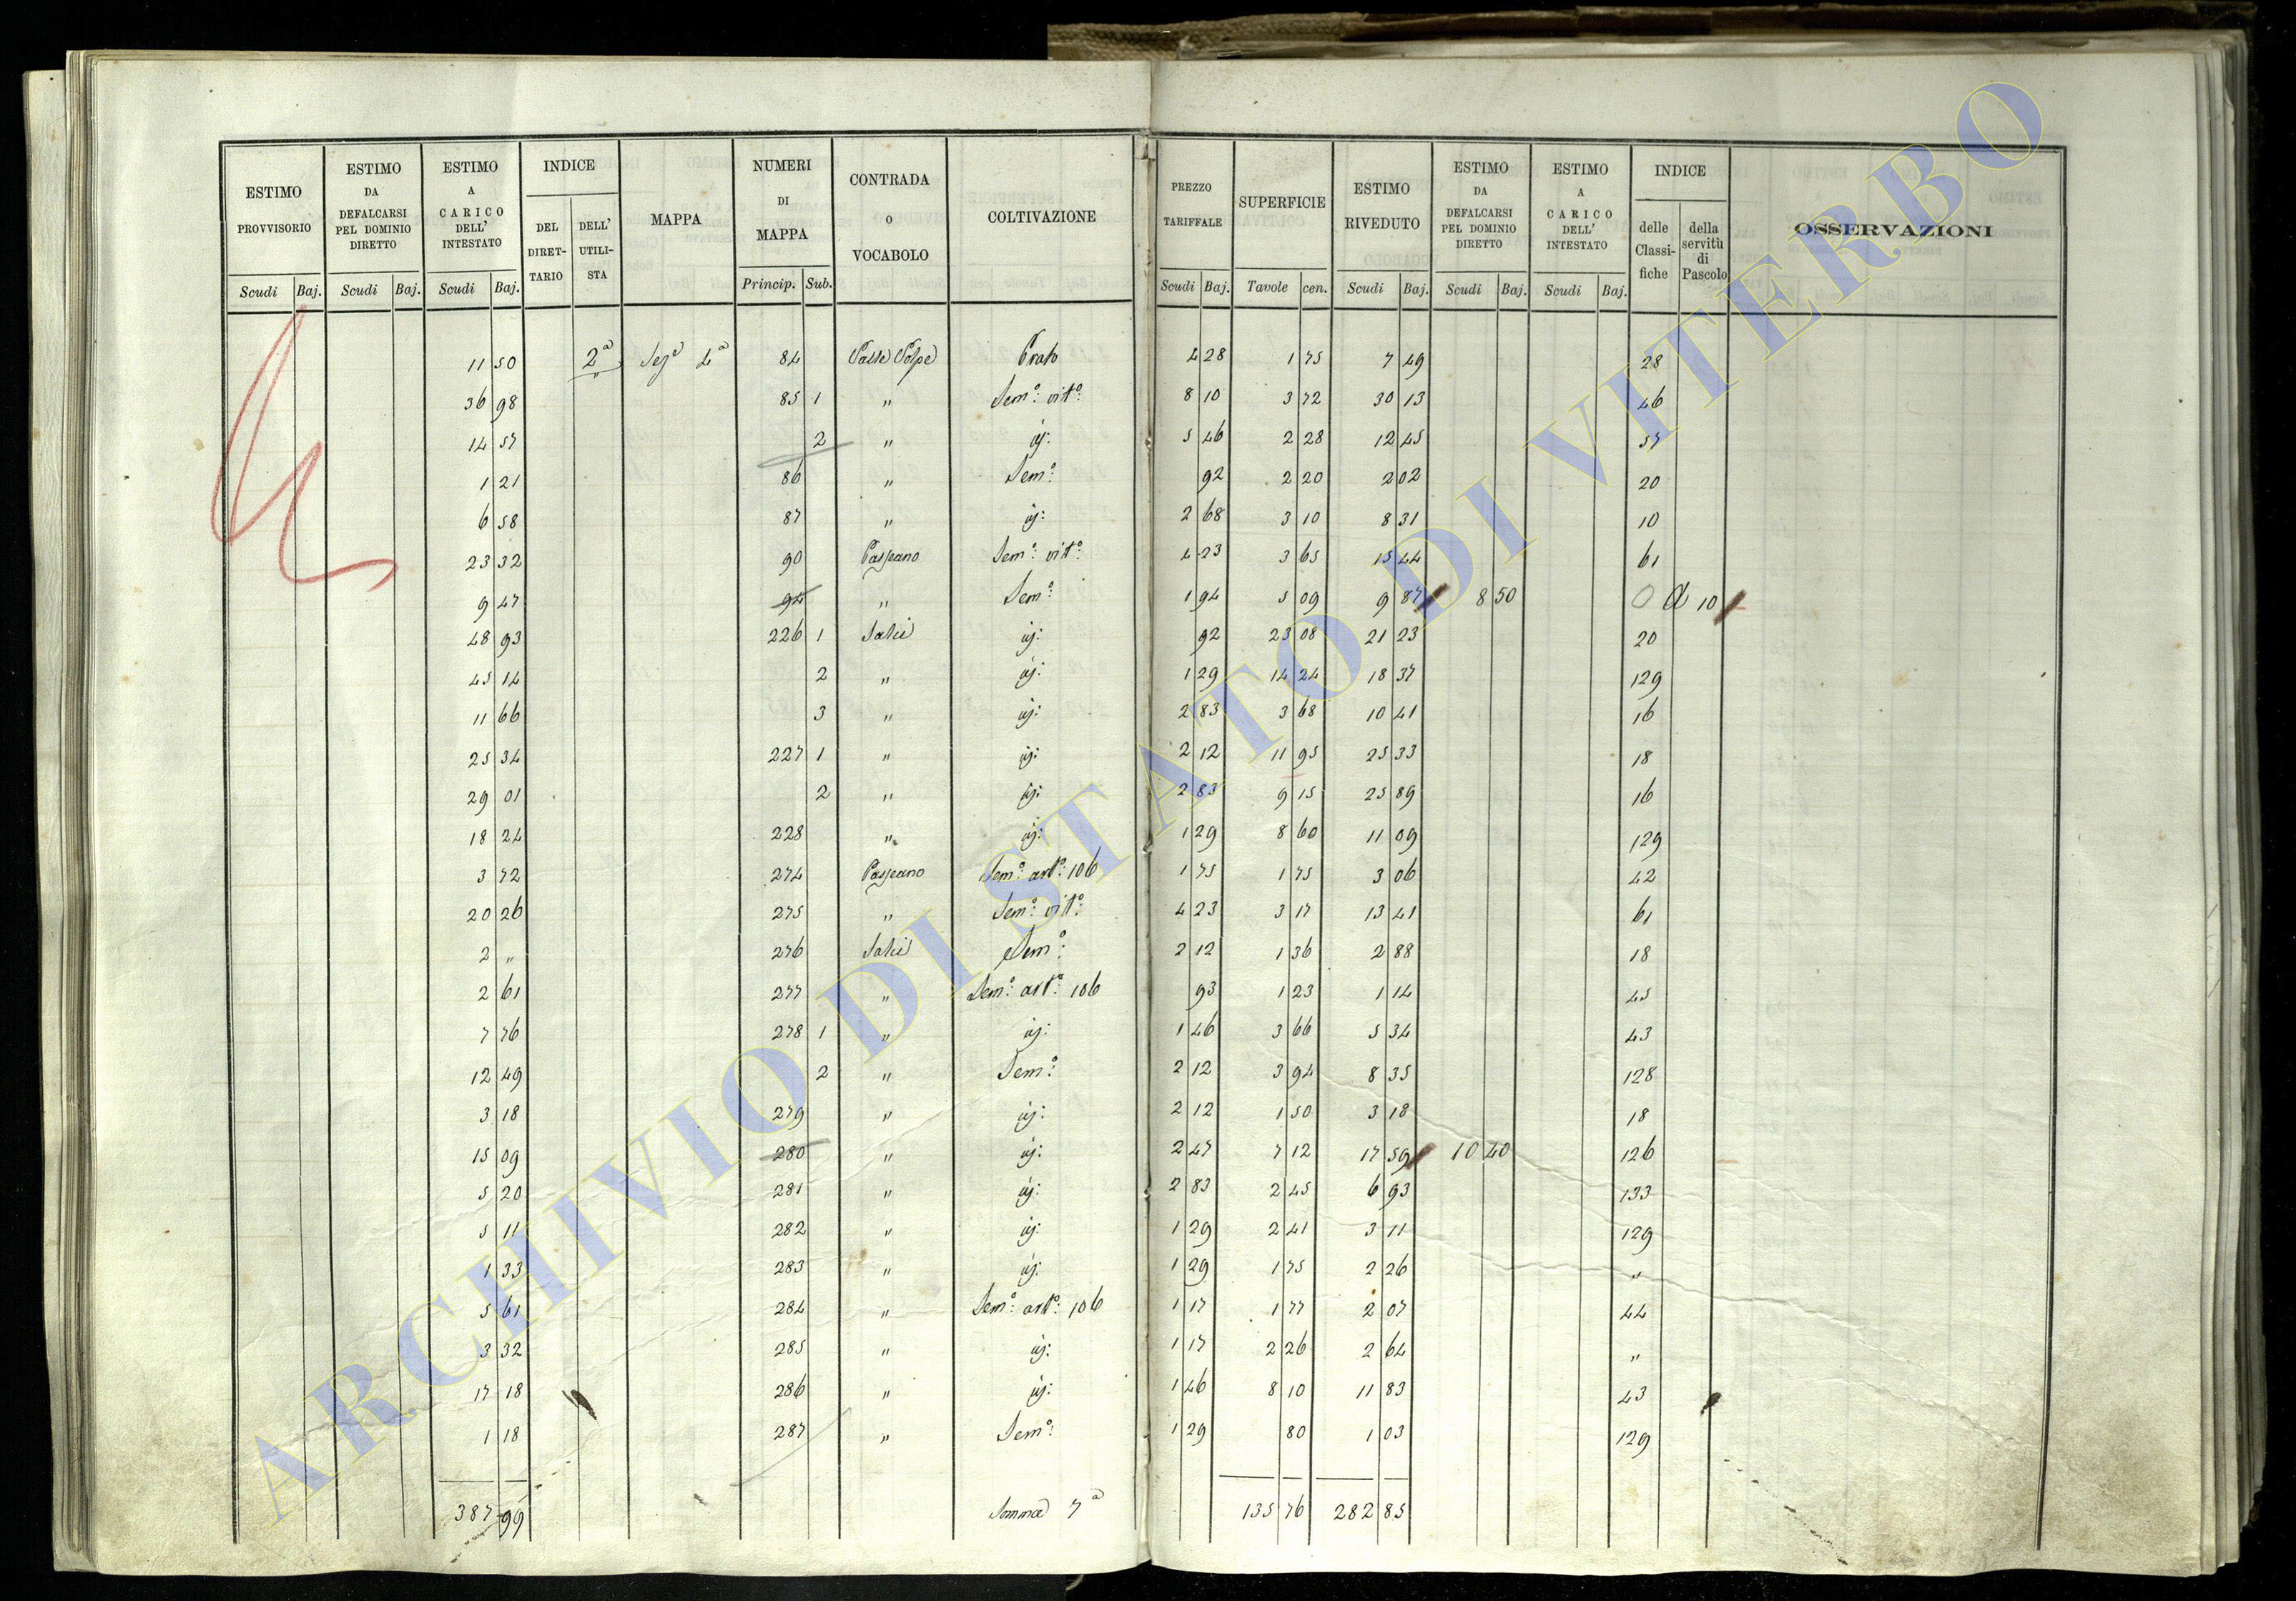 ESTIMO PROVVISORIO | ESTIMO DA DEFALCARSI PEL DOMINIO DIRETTO | ESTIMO A CARICO DELL' INTESTATO | INDICE | MAPPA | NUMERI DI MAPPA | CONTRADA O VOCABOLO | COLTIVAZIONE | PREZZO TARIFFALE | SUPERFICIE | ESTIMO RIVEDUTO | ESTIMO DA DEFALCARSI PEL DOMINIO DIRETTO | ESTIMO A CARICO DELL' INTESTATO | INDICE | OSSERVAZIONI
DEL DIRETTARIO | DELL' UTILISTA | delle Classifiche | della servitù di Pascolo
Scudi | Baj. | Scudi | Baj. | Scudi | Baj. | Princip. | Sub. | Scudi | Baj. | Tavole | cen. | Scudi | Baj. | Scudi | Baj. | Scudi | Baj.
11 50 | 2ª | Sezª 4ª | 84 | Prato | 4 28 | 1 75 | 7 49 | 28
36 98 | 85 | 1 | " | Sem.º vit.º | 8 10 | 3 72 | 30 13 | 46
14 57 | 2 | " | id: | 5 46 | 2 28 | 12 45 | 57
1 21 | 86 | " | Sem.º | 92 | 2 20 | 2 02 | 20
6 58 | 87 | " | id: | 2 68 | 3 10 | 8 31 | 10
23 32 | 90 | Sem.º vit.º | 4 23 | 3 65 | 15 44 | 61
9 47 | 94 | " | Sem.º | 1 94 | 5 09 | 9 87 | 8 50 | 0 | a 10
48 93 | 226 | 1 | Salci | id: | 92 | 23 08 | 21 23 | 20
45 14 | 2 | " | id: | 1 29 | 14 24 | 18 37 | 129
11 66 | 3 | " | id: | 2 83 | 3 68 | 10 41 | 16
25 34 | 227 | 1 | " | id: | 2 12 | 11 95 | 25 33 | 18
29 01 | 2 | " | id: | 2 83 | 9 15 | 25 89 | 16
18 24 | 228 | " | id: | 1 29 | 8 60 | 11 09 | 129
3 72 | 274 | Sem.º art.º 106 | 1 75 | 1 75 | 3 06 | 42
20 26 | 275 | " | Sem.º vit.º | 4 23 | 3 17 | 13 41 | 61
2 " | 276 | Salci | Sem.º | 2 12 | 1 36 | 2 88 | 18
2 61 | 277 | " | Sem.º art.º 106 | 93 | 1 23 | 1 14 | 45
7 76 | 278 | 1 | " | id: | 1 46 | 3 66 | 5 34 | 43
12 49 | 2 | " | Sem.º | 2 12 | 3 94 | 8 35 | 128
3 18 | 279 | " | id: | 2 12 | 1 50 | 3 18 | 18
15 09 | 280 | " | id: | 2 47 | 7 12 | 17 59 | 10 40 | 126
5 20 | 281 | " | id: | 2 83 | 2 45 | 6 93 | 133
5 11 | 282 | " | id: | 1 29 | 2 41 | 3 11 | 129
1 33 | 283 | " | id: | 1 29 | 1 75 | 2 26 | "
5 61 | 284 | " | Sem.º art.º 106 | 1 17 | 1 77 | 2 07 | 44
3 32 | 285 | " | id: | 1 17 | 2 26 | 2 64 | "
17 18 | 286 | " | id: | 1 46 | 8 10 | 11 83 | 43
1 18 | 287 | " | Sem.º | 1 29 | 80 | 1 03 | 129
387 99 | Somma 7ª | 135 76 | 282 85
ARCHIVIO DI STATO DI VITERBO